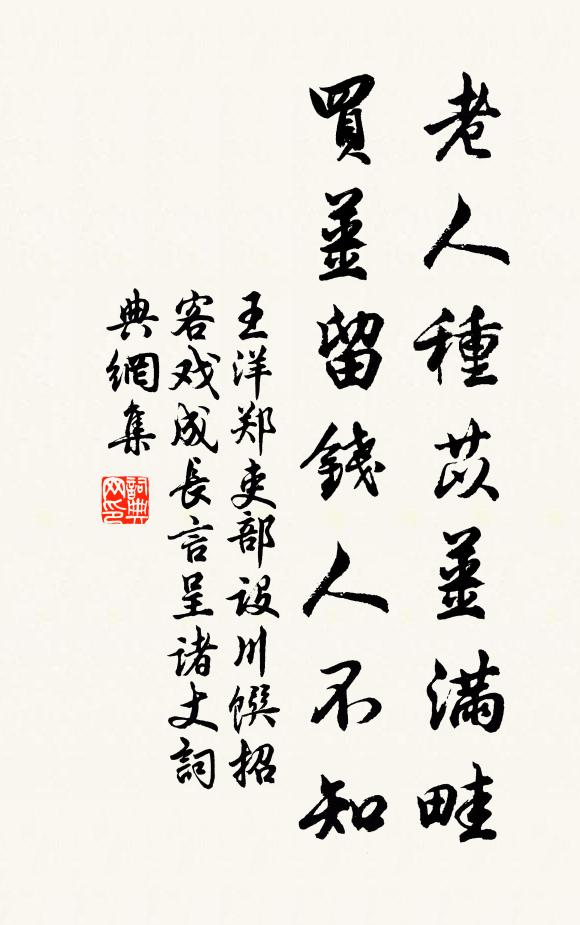 老人種苡薑滿畦
買薑留錢人不知
王洋郑吏部設川馔招
客戏成長言呈诸丈詞
典網集
詞典网印